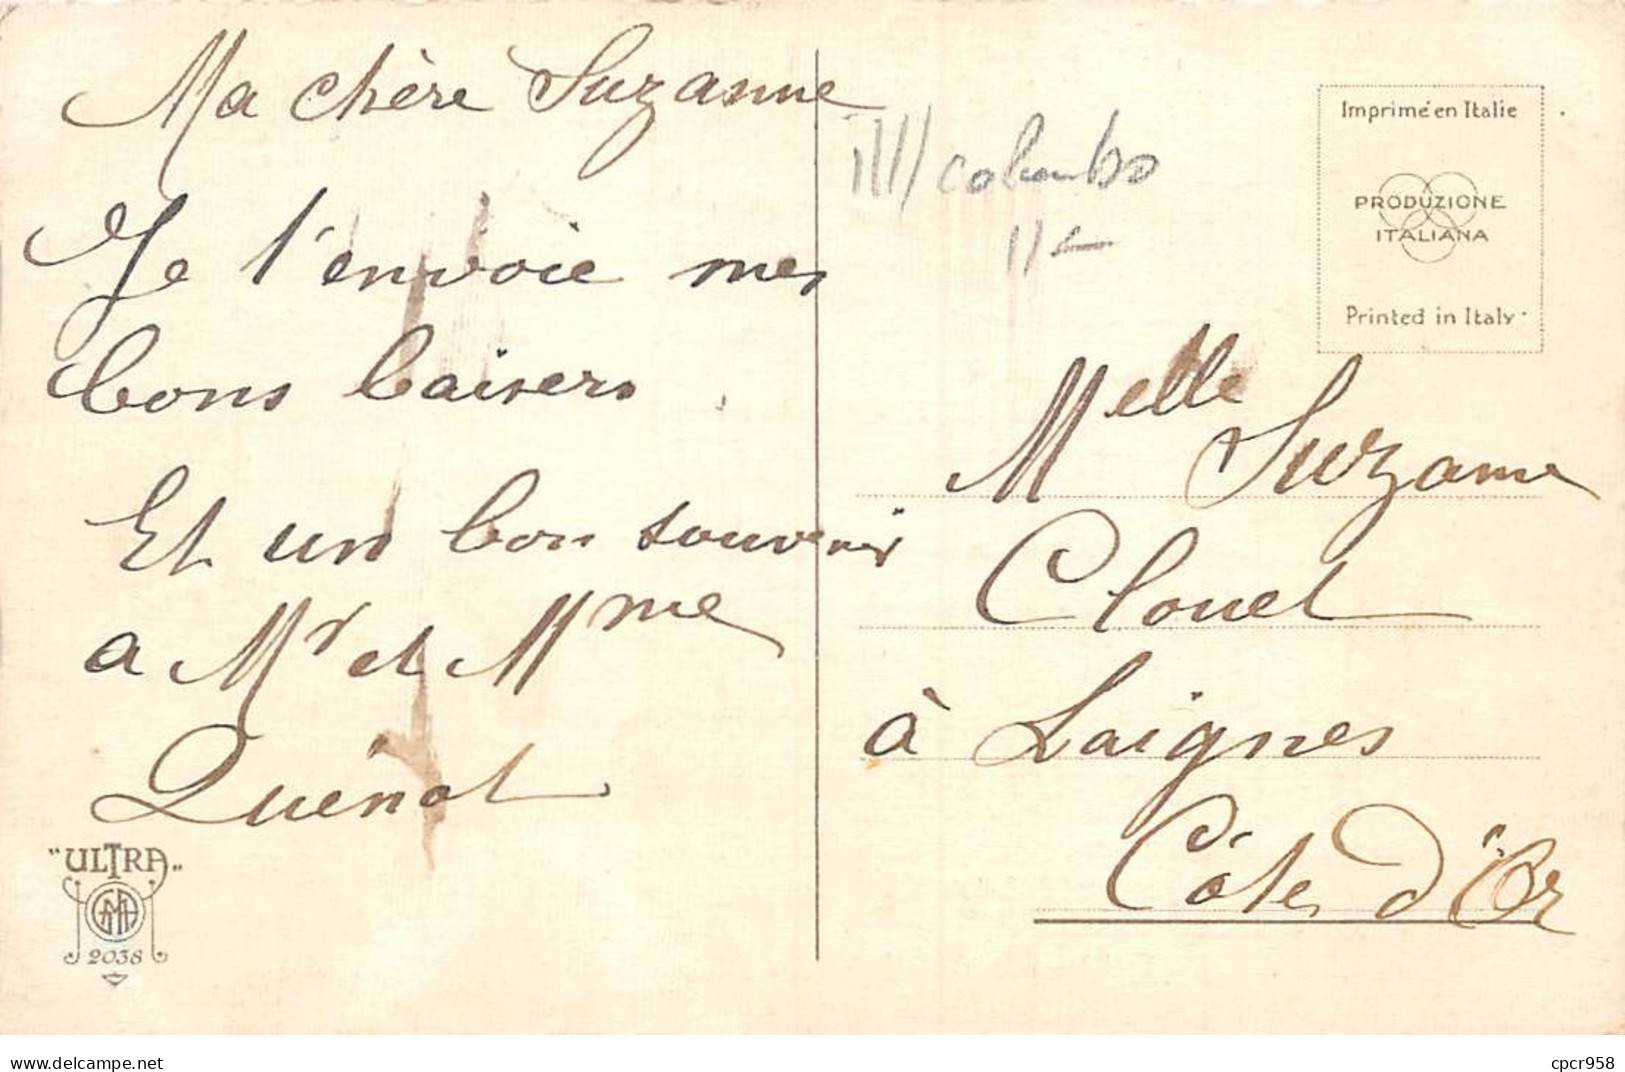 Ma chère Suzanne
Je t'envoie mes
bons baisers
Et un bon souvenir
a Mr et Mme
Quénot
"ULTRA"
2038
colombo
Imprimé en Italie
PRODUZIONE
ITALIANA
Printed in Italy
Melle Suzanne
Clouet
à Laignes
Côte d'Or
www.delcampe.net
cpcr958